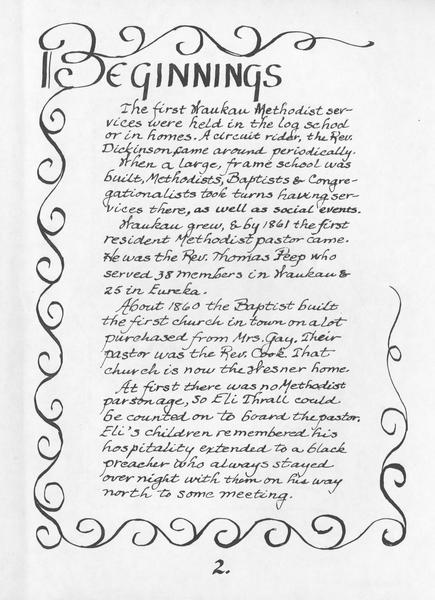 BEGINNINGS
The first Waukau Methodist ser-
vices were held in the log school
or in homes. A circuit rider, the Rev.
Dickinson, came around periodically.
When a large, frame school was
built, Methodists, Baptists & Congre-
gationalists took turns having ser-
vices there, as well as social events.
Waukau grew, & by 1861 the first
resident Methodist pastor came.
He was the Rev. Thomas Peep who
served 38 members in Waukau &
25 in Eureka.
About 1860 the Baptist built
the first church in town on a lot
purchased from Mrs. Gay. Their
pastor was the Rev. Cook. That
church is now the Wesner home.
At first there was no Methodist
parsonage, so Eli Thrall could
be counted on to board the pastor.
Eli's children remembered his
hospitality extended to a black
preacher who always stayed
over night with them on his way
north to some meeting.
2.